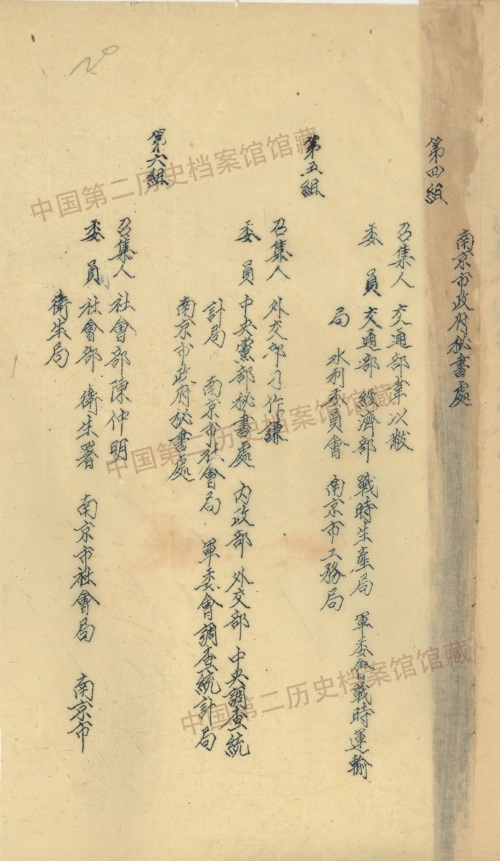 南京市政府秘書處
第四組
召集人 交通部韋以黻
委員 交通部 經濟部 戰時生產局 軍委會戰時運輸
局 水利委員會 南京市工務局
第五組
召集人 外交部刁作謙
委員 中央黨部秘書處 內政部 外交部 中央調查統
計局 南京市社會局 軍委會調查統計局
南京市政府秘書處
第六組
召集人 社會部陳仲明
委員 社會部 衛生署 南京市社會局 南京市
衛生局
中国第二历史档案馆馆藏
中国第二历史档案馆馆藏
中国第二历史档案馆馆藏